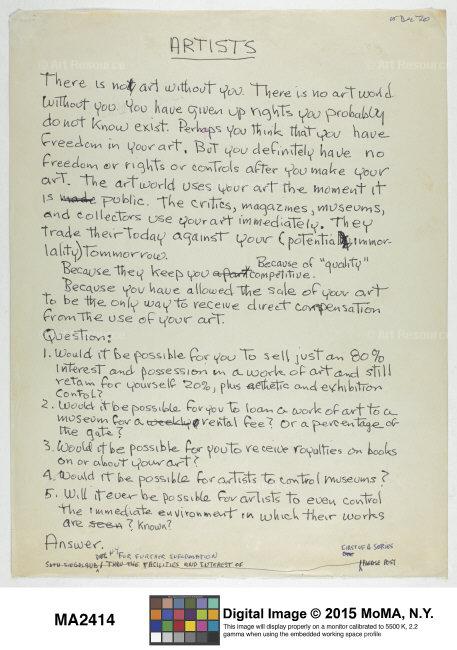 15 Dec 70
ARTISTS
There is not art without you. There is no art world
without you. You have given up rights you probably
do not know exist. Perhaps you think that you have
freedom in your art. But you definitely have no
freedom or rights or controls after you make your
art. The art world uses your art the moment it
is made public. The critics, magazines, museums,
and collectors use your art immediately. They
trade their today against your (potential immor-
tality) tommorrow.
Because of "quality"
Because they keep you apart competitive.
Because you have allowed the sale of your art
to be the only way to receive direct compensation
from the use of your art.
Question:
1. Would it be possible for you to sell just an 80%
interest and possession in a work of art and still
retain for yourself 20%, plus aethetic and exhibition
control?
2. Would it be possible for you to loan a work of art to a
museum for a weekly rental fee? Or a percentage of
the gate?
3. Would it be possible for you to receive royalties on books
on or about your art?
4. Would it be possible for artists to control museums?
5. Will it ever be possible for artists to even control
the immediate environment in which their works
are seen? Known?
Answer.
FOR FURTHER INFORMATION
FIRST OF A SERIES
SETH SIEGELAUB THRU THE FACILITIES AND INTEREST OF
PLEASE POST
© Art Resource
© Art Resource
© Art Resource
© Art Resource
MA2414
Digital Image © 2015 MoMA, N.Y.
This image will display properly on a monitor calibrated to 5500 K, 2.2
gamma when using the embedded working space profile